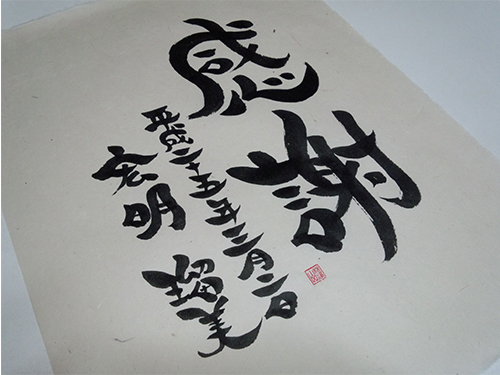 感謝
平成二十五年三月二日
宏明
瑠美